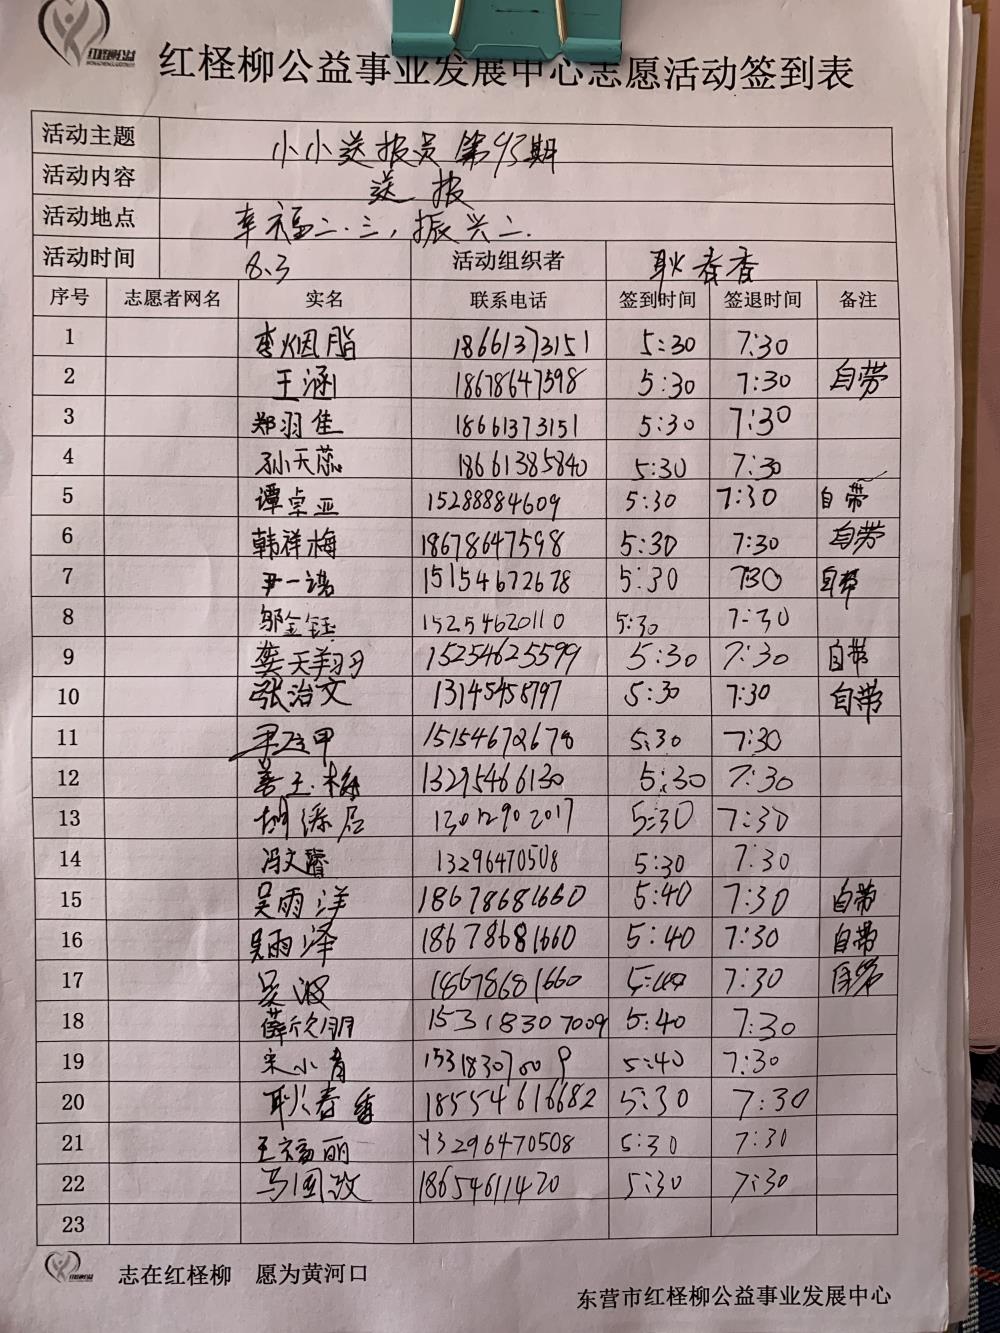 红柽柳公益
红柽柳公益事业发展中心志愿活动签到表
活动主题 小小送报员第93期
活动内容 送报
活动地点 幸福二.三，振兴二.
活动时间 8.3 活动组织者 耿春香
序号 志愿者网名 实名 联系电话 签到时间 签退时间 备注
1 李烟脂 18661373151 5:30 7:30
2 王涵 18678647598 5:30 7:30 自带
3 郑羽佳 18661373151 5:30 7:30
4 孙天蕊 18661385840 5:30 7:30
5 谭卓亚 15288884609 5:30 7:30 自带
6 韩祥梅 18678647598 5:30 7:30 自带
7 尹一诺 15154672678 5:30 7:30 自带
8 邹金钰 15254620110 5:30 7:30
9 龚天翔 15254625599 5:30 7:30 自带
10 张治文 13145458797 5:30 7:30 自带
11 15154672678 5:30 7:30
12 13295466130 5:30 7:30
13 胡 13012902017 5:30 7:30
14 冯文睿 13296470508 5:30 7:30
15 吴雨洋 18678681660 5:40 7:30 自带
16 吴雨泽 18678681660 5:40 7:30 自带
17 吴波 18678681660 5:40 7:30 自带
18 薛欣朋 15318307009 5:40 7:30
19 宋小青 15318307009 5:40 7:30
20 耿春香 18554616682 5:30 7:30
21 王福丽 13296470508 5:30 7:30
22 马国政 18654611420 5:30 7:30
23
志在红柽柳 愿为黄河口
东营市红柽柳公益事业发展中心